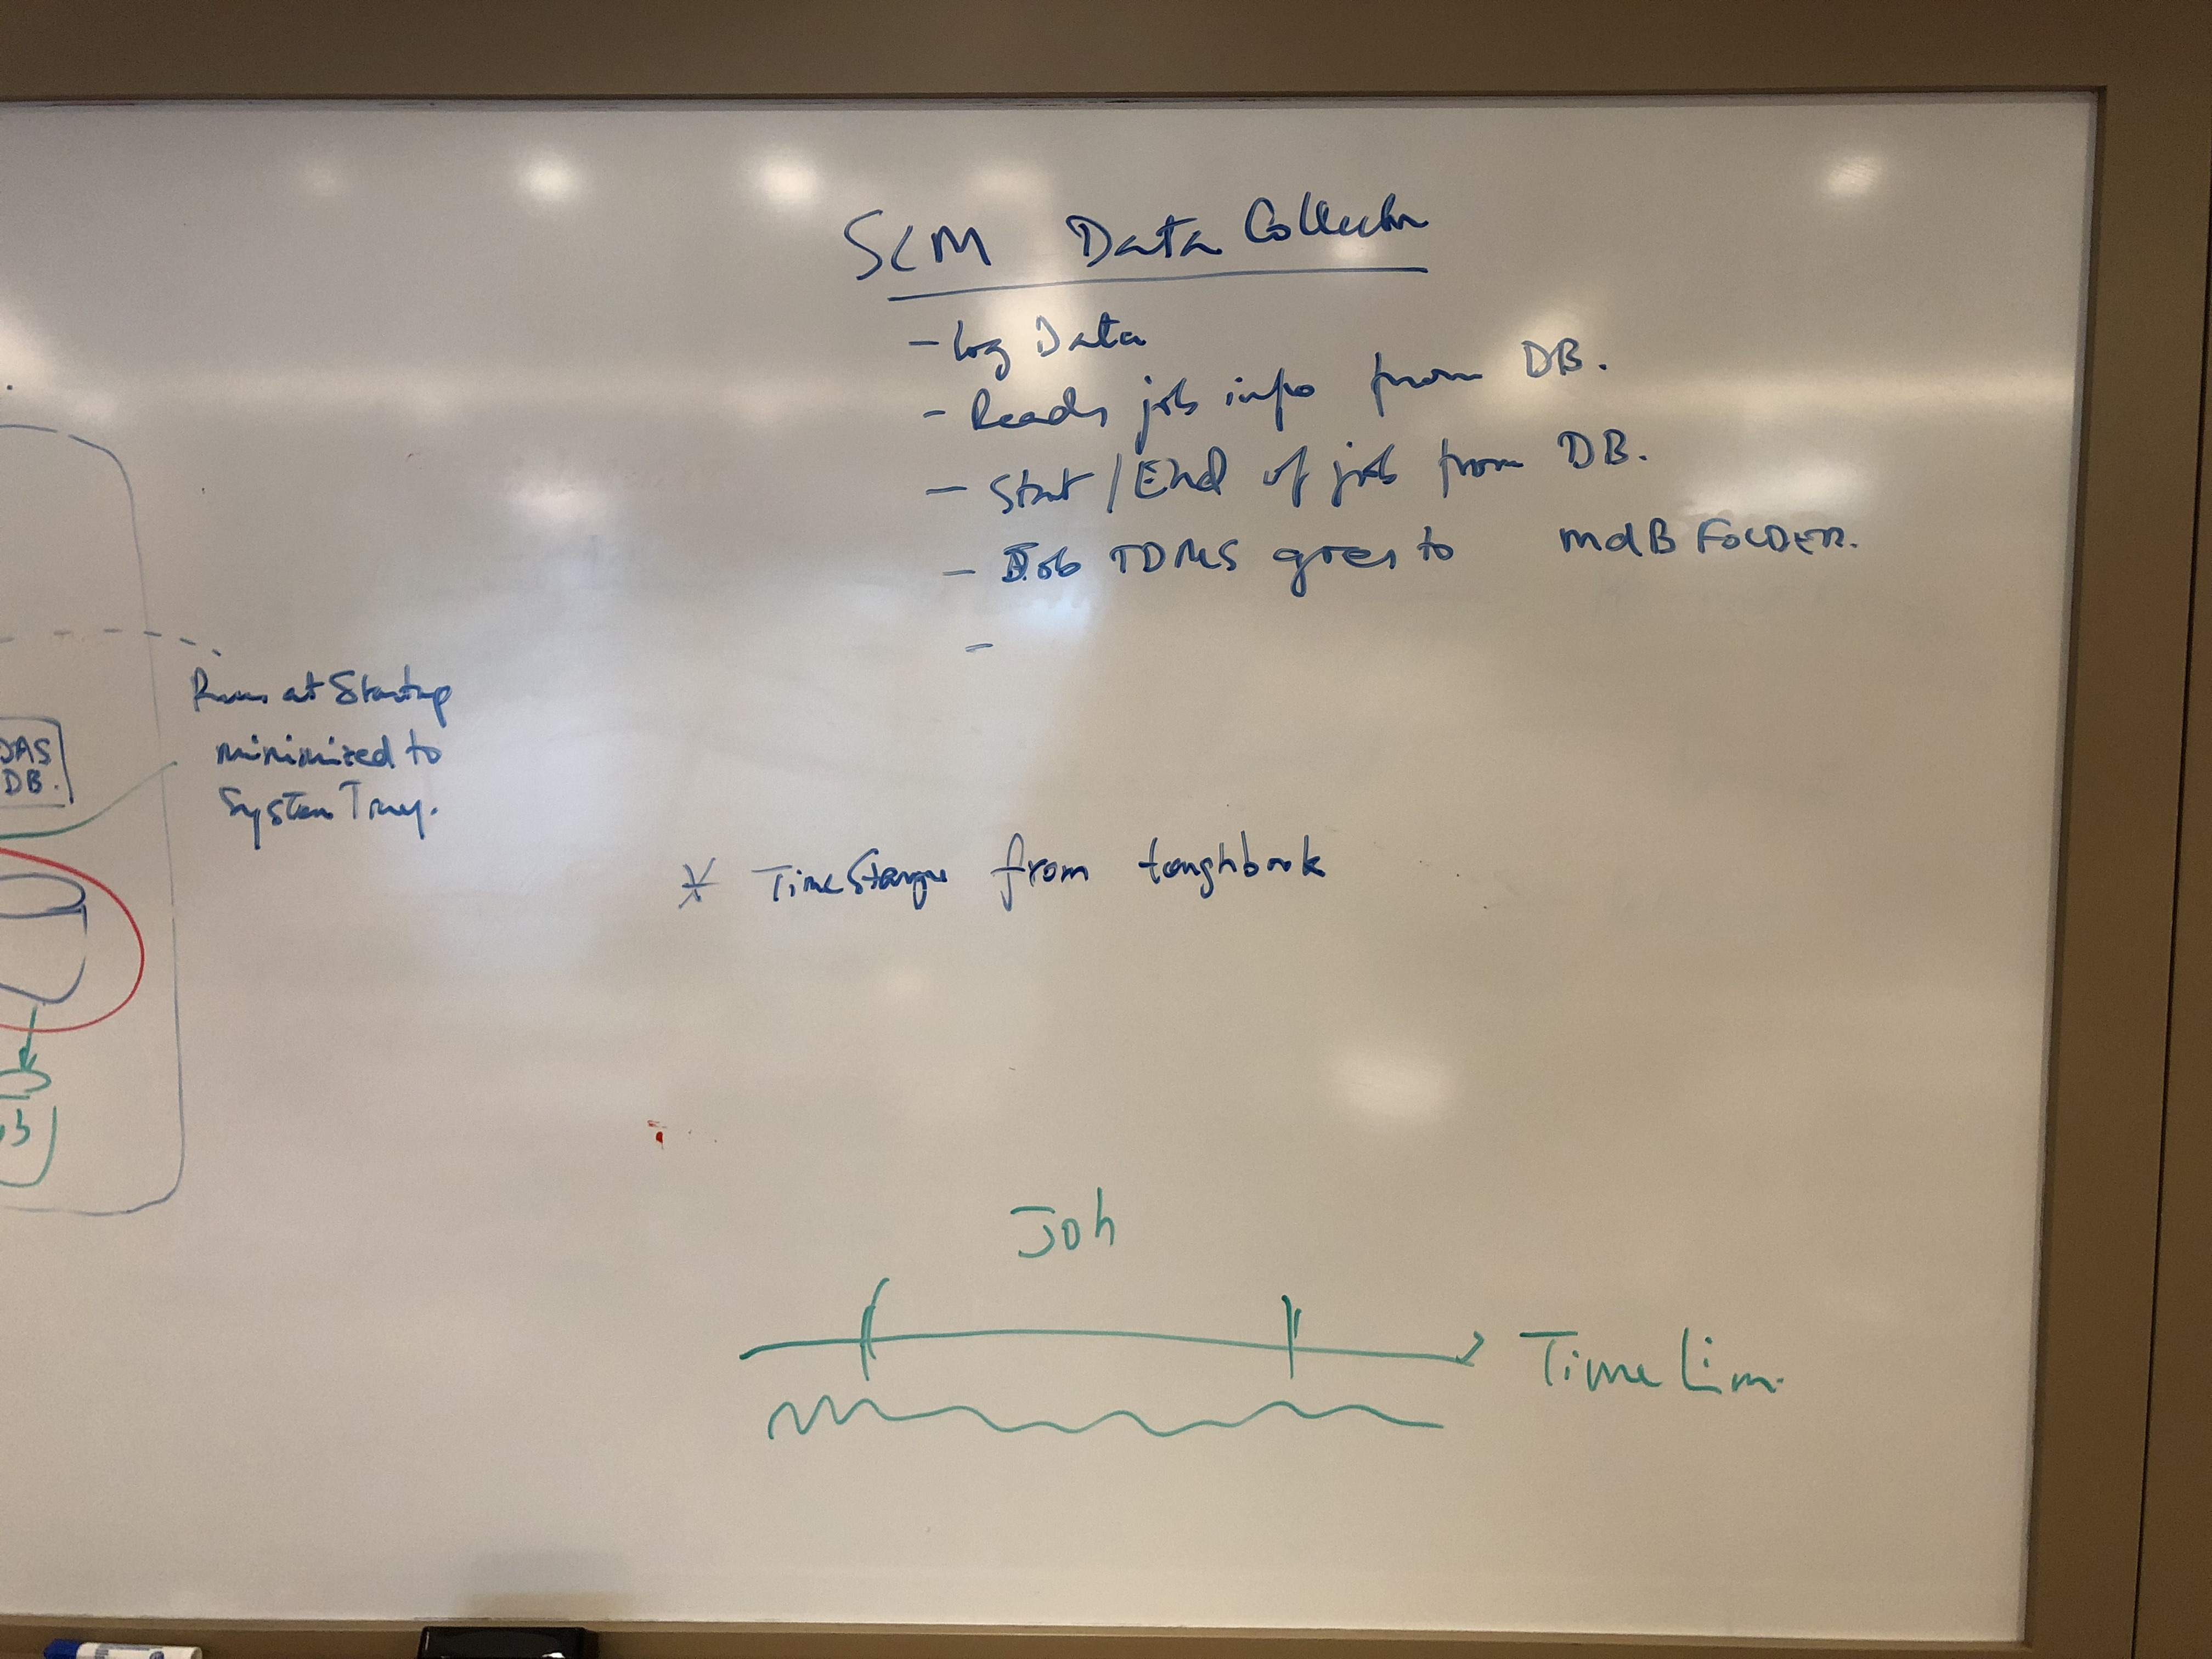 SCM Data Collector
- Log Data
- Reads job info from DB.
- Start/End of job from DB.
- Job TDMS goes to mdB FOLDER.
-
Runs at Startup
minimized to
System Tray.
DAS
DB.
* TimeStamp from toughbook
Job
Time Line